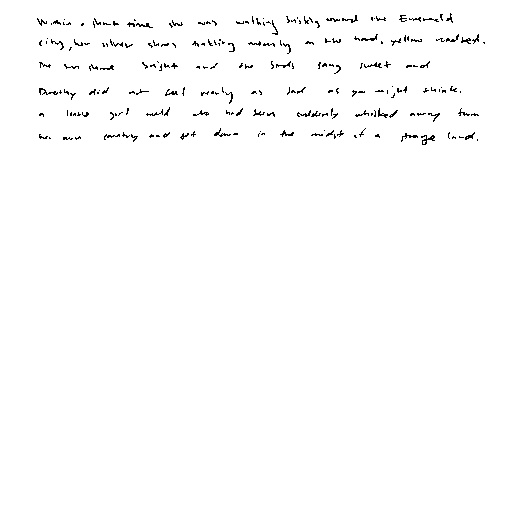 Within a short time she was walking briskly toward the Emerald
City, her silver shoes tinkling merrily on the hard, yellow roadbed.
The sun shone bright and the birds sang sweet and
Dorothy did not feel nearly as bad as you might think
a little girl would who had been suddenly whisked away from
her own country and set down in the midst of a strange land.